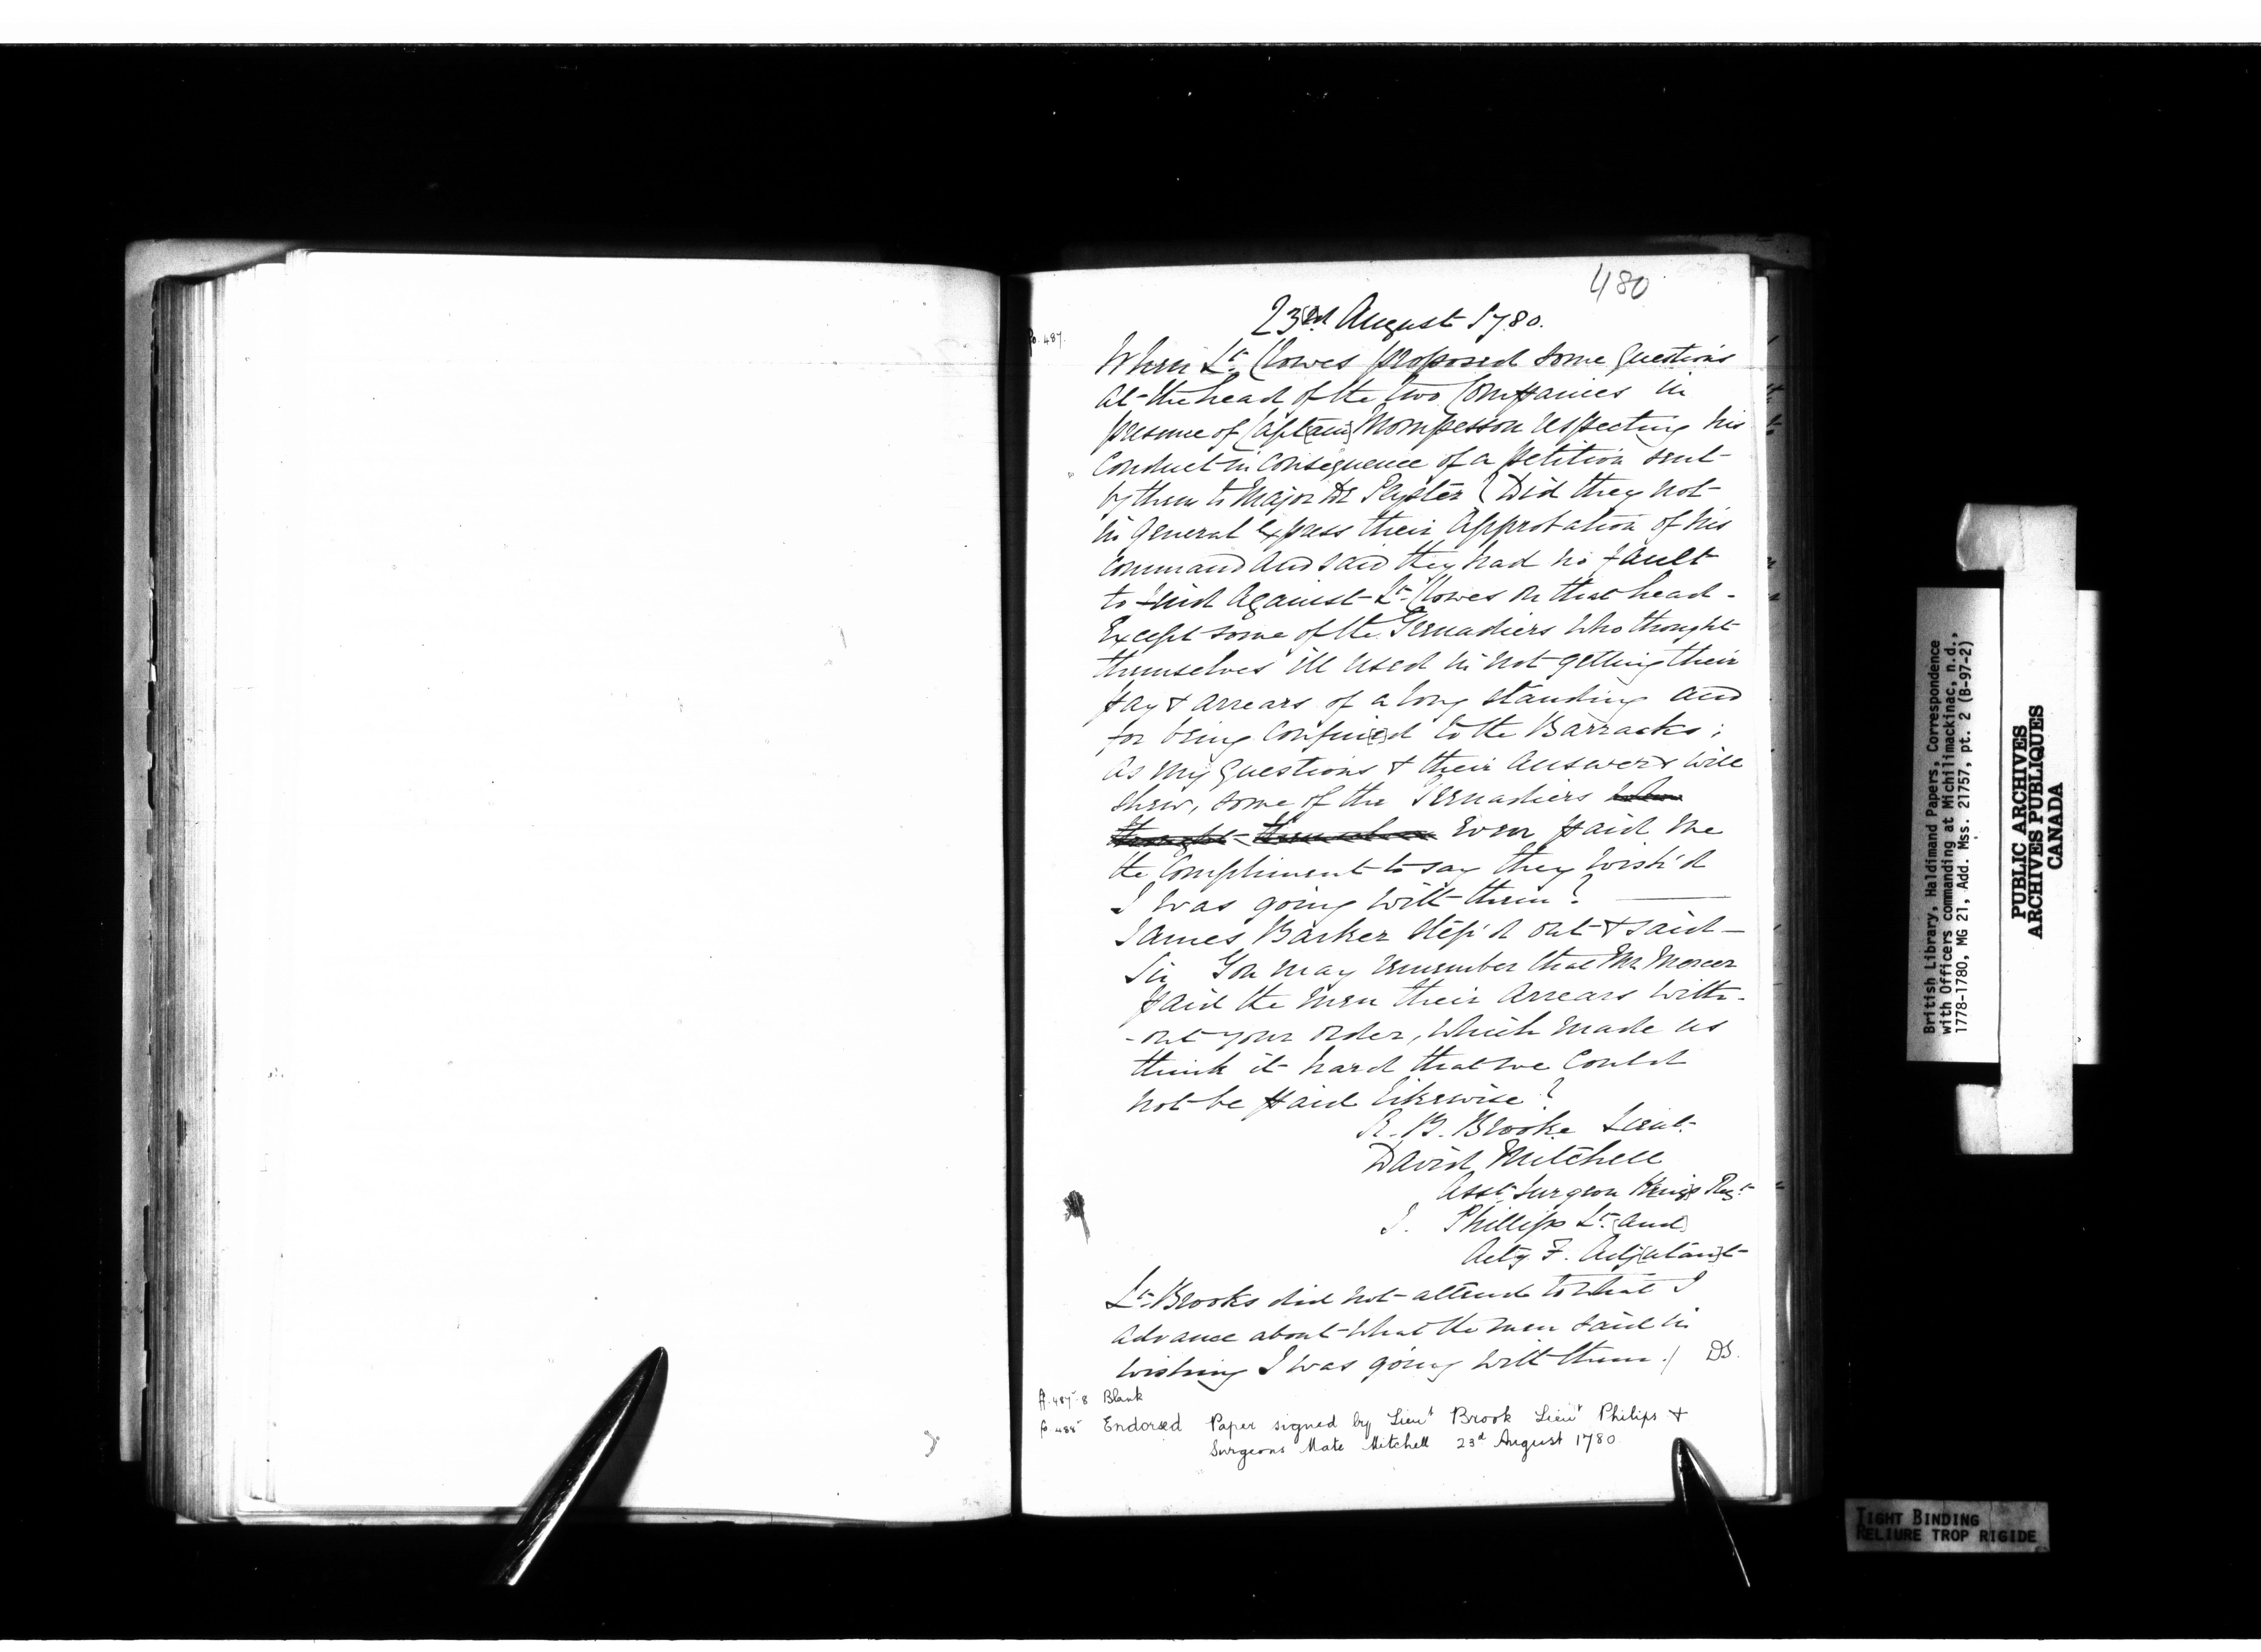 480
23rd August 1780.
fo. 487.
When Lt. Clowes proposed some Questions
at the head of the two Companies in
presence of Capt[ain] Mompesson respecting his
Conduct in Consequence of a petition sent
by them to Major De Peyster? Did they not
in general Express their Approbation of his
Command and said they had no fault
to find Against Lt. Clowes on that head -
Except some of the Grenadiers Who thought
themselves ill used in not getting their
pay & arrears of a long standing and
for being Confin[e]d to the Barracks;
As my Questions & their Answers Will
shew, some of the Grenadiers who
thought themselves Even paid me
the Compliment to say they Wish'd
I Was going With them?
James Barker step'd out & said —
Sir You may remember that Mr. Mercer
paid the men their arrears With-
-out your order, Which made us
think it hard that we Could
not be paid likewise?
R. B. Brooke Lieut.
David Mitchell
Asst. Surgeon Kings Regt.
J. Phillips Lt. [and]
Actg. F. Adj[utan]t
Lt. Brooks did not attend to What I
advance about What the men said in
Wishing I was going With them./
ff. 487-8 Blank
fo. 488 Endorsed Paper signed by Lieut Brook Lieut Philips &
Surgeons Mate Mitchell 23d August 1780.
British Library, Haldimand Papers, Correspondence
with Officers commanding at Michilimackinac, n.d.,
1778-1780, MG 21, Add. Mss. 21757, pt. 2 (B-97-2)
PUBLIC ARCHIVES
ARCHIVES PUBLIQUES
CANADA
TIGHT BINDING
RELIURE TROP RIGIDE